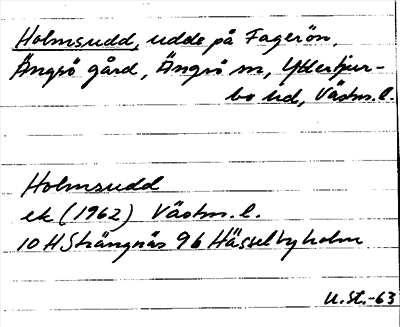 Holmsudd, udde på Fagerön,
Ängsö gård, Ängsö sn, Yttertjur-
bo hd, Västm. l.
Holmsudd
ek (1962) Västm. l.
10 H Strängnäs 9 b Hässelbyholm
U. St. -63